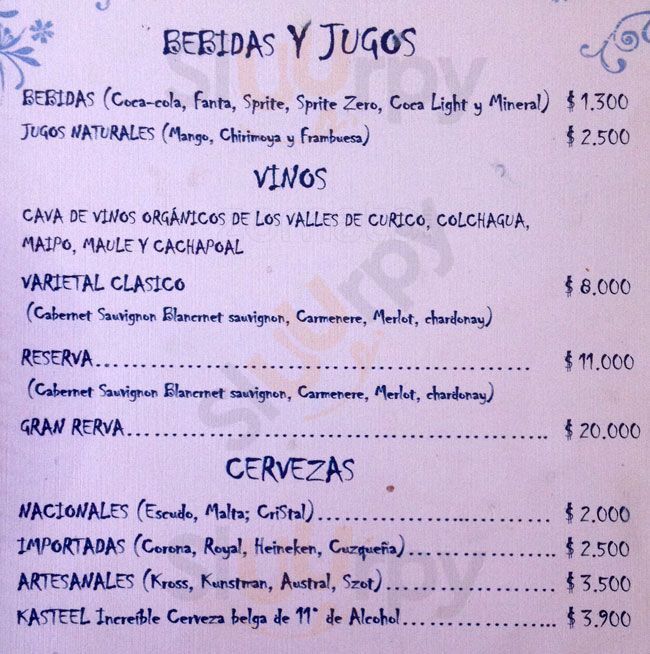 BEBIDAS Y JUGOS
BEBIDAS (Coca-cola, Fanta, Sprite, Sprite Zero, Coca Light y Mineral) $ 1.300
JUGOS NATURALES (Mango, Chirimoya y Frambuesa) $ 2.500
VINOS
CAVA DE VINOS ORGÁNICOS DE LOS VALLES DE CURICO, COLCHAGUA,
MAIPO, MAULE Y CACHAPOAL
VARIETAL CLASICO $ 8.000
(Cabernet Sauvignon Blancrnet sauvignon, Carmenere, Merlot, chardonay)
RESERVA.................................................... $ 11.000
(Cabernet Sauvignon Blancrnet sauvignon, Carmenere, Merlot, chardonay)
GRAN RERVA.................................................... $ 20.000
CERVEZAS
NACIONALES (Escudo, Malta; CriStal)............................ $ 2.000
IMPORTADAS (Corona, Royal, Heineken, Cuzqueña)................. $ 2.500
ARTESANALES (Kross, Kunstman, Austral, Szot)................... $ 3.500
KASTEEL Increíble Cerveza belga de 11° de Alcohol.................. $ 3.900
Sluurpy
Sluurpy
Sluurpy